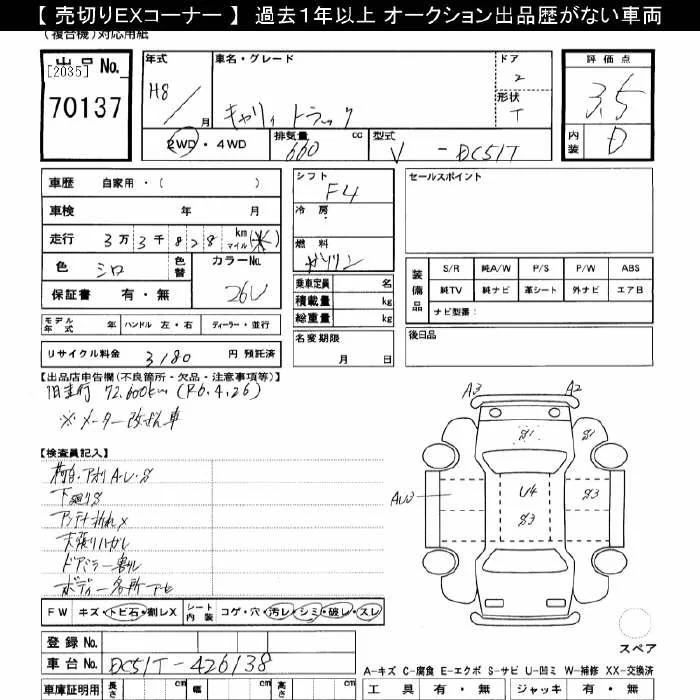 【 売切りEXコーナー 】 過去1年以上 オークション出品歴がない車両
(複合機)対応用紙
出品 No.
[2035]
70137
年式
H8
月
車名・グレード
キャリィ トラック
ドア
2
形状
T
評価点
3.5
内装
D
2WD・4WD
排気量
660
cc
型式
V - DC51T
車歴 自家用・( )
車検 年 月
走行 3万3千828 km マイル (※)
色 シロ
色替
カラーNo.
26U
保証書 有・無
モデル年式 年 ハンドル 左・右 ディーラー・並行
リサイクル料金 3180 円 預託済
シフト
F4
冷房
燃料
ガソリン
乗車定員 名
積載量 kg
総重量 kg
名変期限
月 日
セールスポイント
装備品
S/R 純A/W P/S P/W ABS
純TV 純ナビ 革シート 外ナビ エアB
ナビ型番:
後日品
【出品店申告欄(不良箇所・欠品・注意事項等)】
旧走行 72,600km (R6.4.26)
※メーター改ざん車
【検査員記入】
荷台・アオリ A・U・S
下廻りS
アンテナ折れ×
天張りハガレ
ドアミラー割れ
ボディー各所
A3
A2
S1
S1
AU3
U4
S3
S3
スペア
FW キズ・トビ石・割レX
シート内装 コゲ・穴・汚レ・シミ・破レ・スレ
登録 No.
車台 No. DC51T-426138
車庫証明用 長さ cm 幅 cm 高さ cm
A-キズ C-腐食 E-エクボ S-サビ U-凹ミ W-補修 XX-交換済
工具 有・無 ジャッキ 有・無